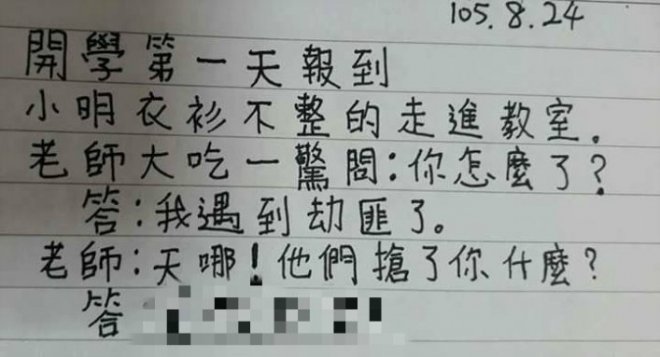 105.8.24
開學第一天報到
小明衣衫不整的走進教室。
老師大吃一驚問:你怎麼了?
答:我遇到劫匪了。
老師:天哪!他們搶了你什麼?
答